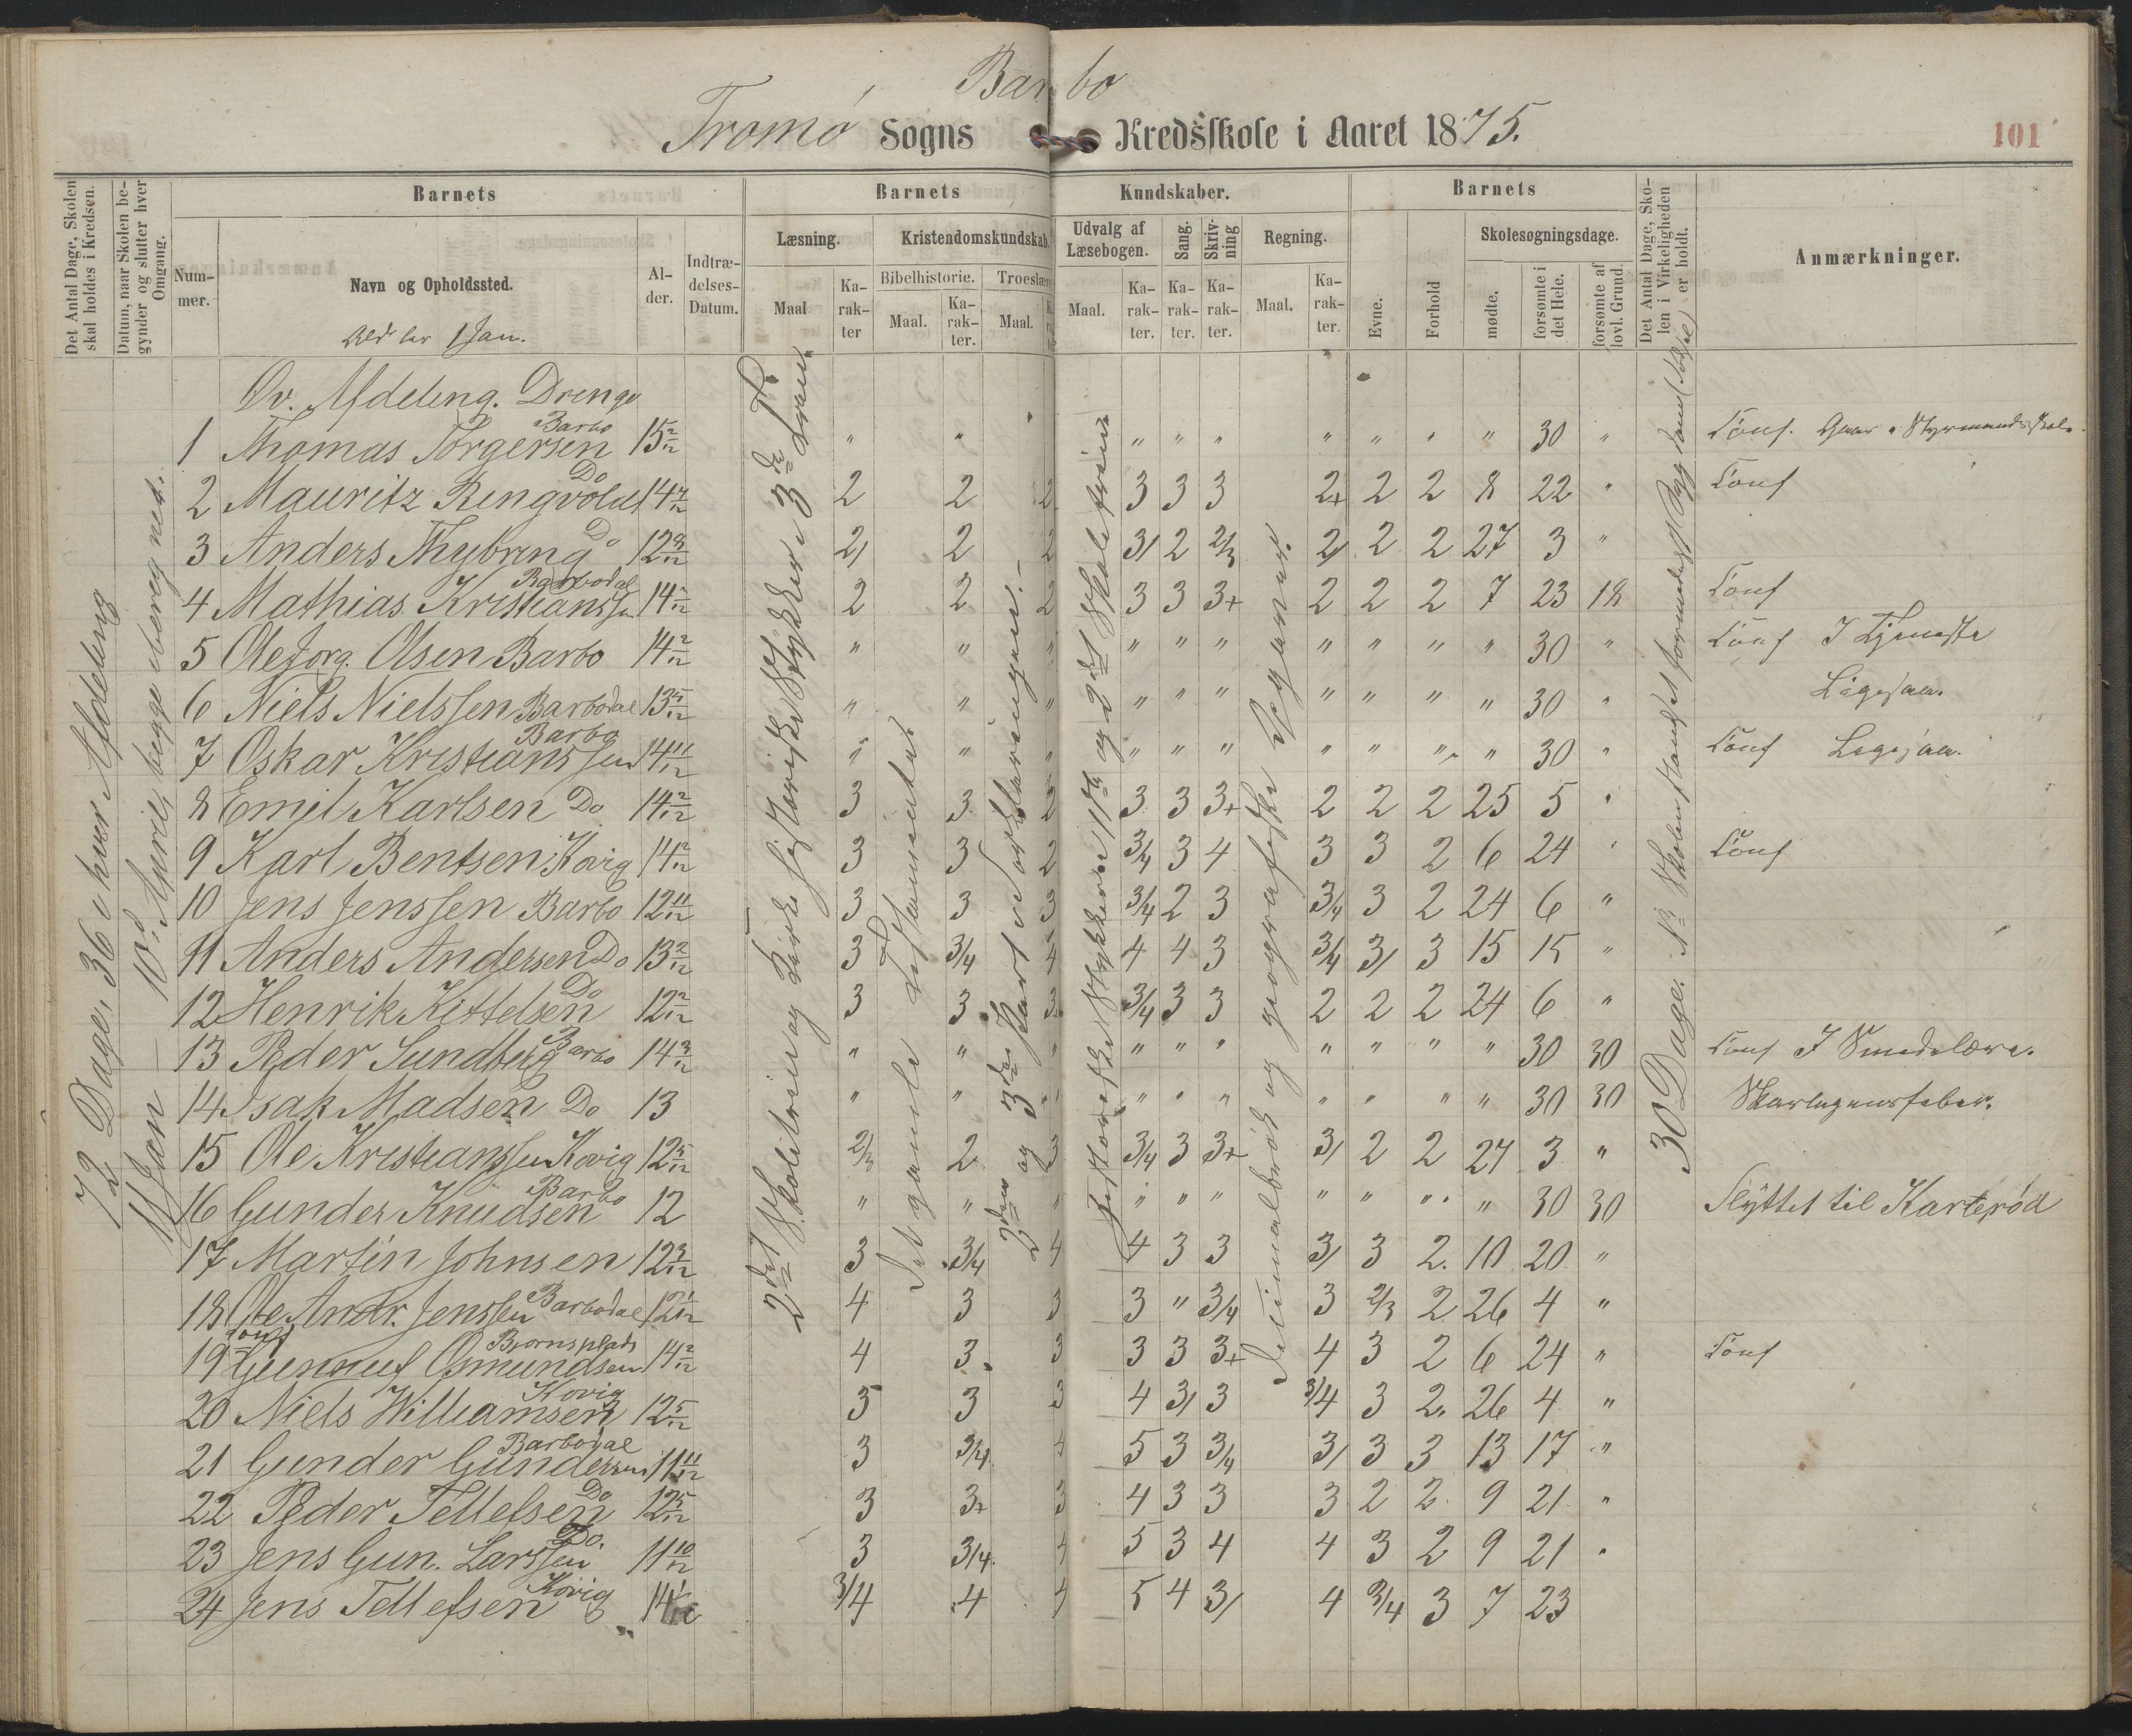 Barbo
Tromø Sogns Kredsskole i Aaret 1875.
101
Det Antal Dage, Skolen skal holdes i Kredsen.
Datum, naar Skolen begynder og slutter hver Omgang.
Barnets
Nummer.
Navn og Opholdssted.
Alder.
Indtrædelses-Datum.
Barnets Kundskaber.
Læsning.
Maal
Karakter
Kristendomskundskab.
Bibelhistorie.
Maal.
Karakter.
Troeslære
Maal.
Udvalg af Læsebogen.
Maal.
Karakter.
Sang.
Karakter.
Skrivning
Karakter.
Regning.
Maal.
Karakter.
Barnets
Evne.
Forhold
Skolesøgningsdage.
mødte.
forsømte i det Hele.
forsømte af lovl. Grund.
Det Antal Dage, Skolen i Virkeligheden er holdt.
Anmærkninger.
Alder 1 Jan.
72 Dage, 36 i hver Afdeling
11 Jan – 10d April, begge iberegnet.
2det Skoletrin og
3die Trin.
Det gamle Testamente
2den og 3die Part
Forklaringen.
og 2det Skoletrin
Decimalbrøk og geografiske
30 Dage.
Øv. Afdeling. Drenge
1 Thomas Torgersen Barbo 15 2/12 " " " " " " " " " 30 " Conf. Styrmandsskole.
2 Mauritz Ringvold Do 14 2 2 2 3 3 3 2+ 2 2 8 22 " Conf
3 Anders Thybring Do 12 2/ 2 2 3/ 2 2/3 2/ 2 2 27 3 "
4 Mathias Kristianssen Barbodal 14 2 2 2 3 3 3+ 2 2 2 7 23 18 Conf
5 Ole Jorg. Olsen Barbo 14 2/12 " " " " " " " " " " 30 " Conf I Tjeneste
6 Niels Nielssen Barbodal 13 5/12 " " " " " " " " " " 30 " Ligesaa.
7 Oskar Kristianssen Barbo 14 11/12 " " " " " " " " " " 30 " Conf Ligesaa.
8 Emil Karlsen Do 14 2/12 3 3 2 3 3 3+ 2 2 2 25 5 "
9 Karl Bentsen Kovig 14 2/12 3 3 2 3/4 3 4 3 3 2 6 24 " Conf
10 Jens Jenssen Barbo 12 11/12 3 3 3 3/4 2 3 3/4 3 2 24 6 "
11 Anders Andersen Do 13 2/12 3 3/4 4 4 4 3 3/4 3/ 3 15 15 "
12 Henrik Kittelsen Do 12 2/12 3 3 3 3/4 3 3 2 2 2 24 6 "
13 Peder Sundberg Barbo 14 3/12 " " " " " " " " " " 30 30 Conf I Smedelære.
14 Isak Madsen Do 13 " " " " " " " " " " 30 30 Skarlagensfeber.
15 Ole Kristianssen Kovig 12 5/12 2/3 2 3 3/4 3 3+ 3/ 2 2 27 3 "
16 Gunder Knudsen Barbo 12 " " " " " " " " " " 30 30 Flyttet til Karterød
17 Martin Johnsen 12 3 3/4 4 4 3 3 3/ 3 2. 10 20 "
18 Ole Andr. Jenssen Barbodal 12 1/12 4 3 3 3 " 3/4 3 2/3 2 26 4 "
Conf
19 Gunnuf Osmundsen Bjornsplads 14 2/12 4 3 3 3 3 3+ 4 3 2 6 24 " Conf
20 Niels Williamsen Kovig 12 5/12 3 3 3 4 3/ 3 3/4 3 2. 26 4 "
21 Gunder Gundersen Barbodal 11 11/12 3 3/4 4 5 3 3/4 3/ 3 3 13 17 "
22 Peder Tellefsen Do 12 5/12 3 3+ 3 4 3 3 3 2 2 9 21 "
23 Jens Gun. Larssen Do. 11 10/12 3 3/4 4 5 3 4 4 3 2 9 21 "
24 Jens Tellefsen Kovig 14 3/4 4 4 5 4 3/ 4 3/4 3 7 23